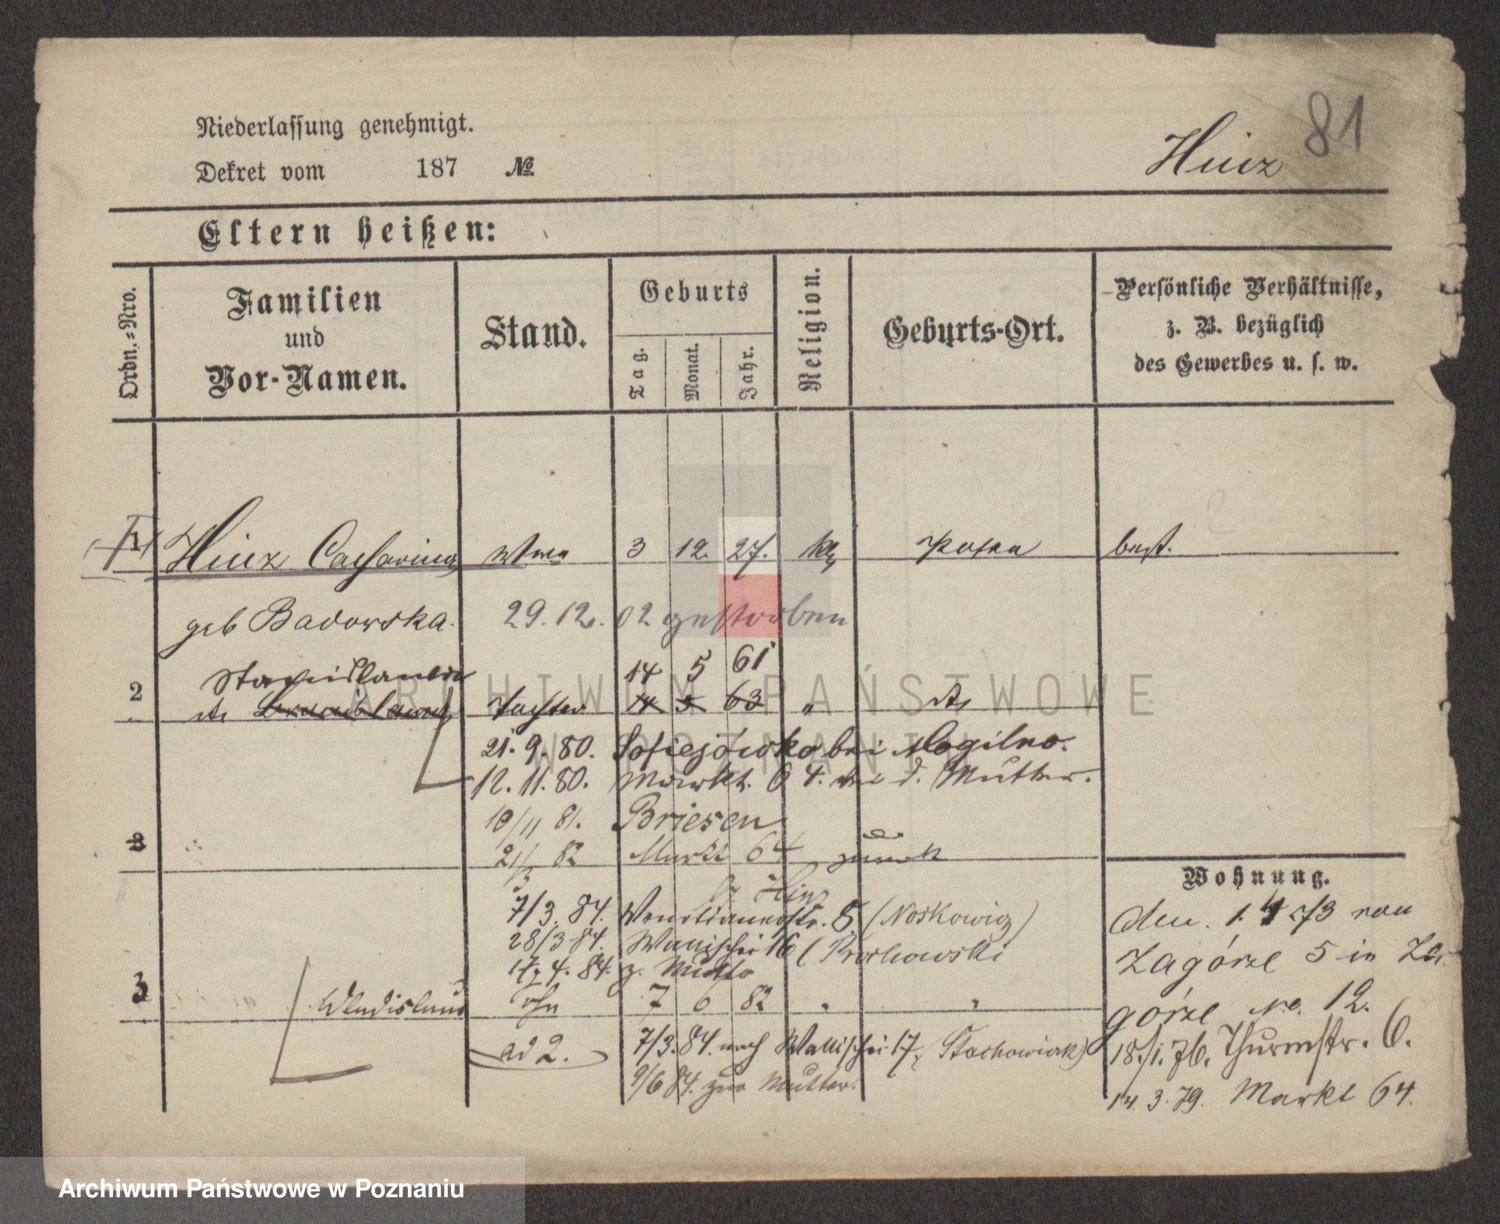 81
Hinz
Niederlassung genehmigt.
Dekret vom 187 №
Eltern heißen:
Ordn.-Nro.
Familien
und
Vor-Namen.
Stand.
Geburts
Tag.
Monat.
Jahr.
Religion.
Geburts-Ort.
Persönliche Verhältnisse,
z. B. bezüglich
des Gewerbes u. s. w.
1 Hinz Catharina Wwe 3 12. 27. kth Posen
geb Badowska. 29. 12. 02 gestorben
Stanislawa 14 5 61
2 Tochter 14 5 63 " dto
21. 9. 80. Sofiejowko bei Mogilno.
12. 11. 80. Markt. 64. bei d. Mutter.
10/11 81. Briesen
3 21/3 82 Markt 64 zurück
Hinz
7/3. 84. Venetianerstr. 5 (Noskowicz)
28/3 84. Wallischei 16
17. 4. 84. z. Mutter
3 Wladislaus Sohn 7 6 82 " "
ad 2. 7/3. 84. nach Wallischei 17. (Stachowiak)
9/6 84. zur Mutter.
Wohnung.
den 1. 4 73 von
Zagórze 5 in Za-
górze No. 12.
18./1. 76. Thurmstr. 6.
14. 3. 79. Markt 64.
ARCHIWUM PAŃSTWOWE
W POZNANIU
Archiwum Państwowe w Poznaniu